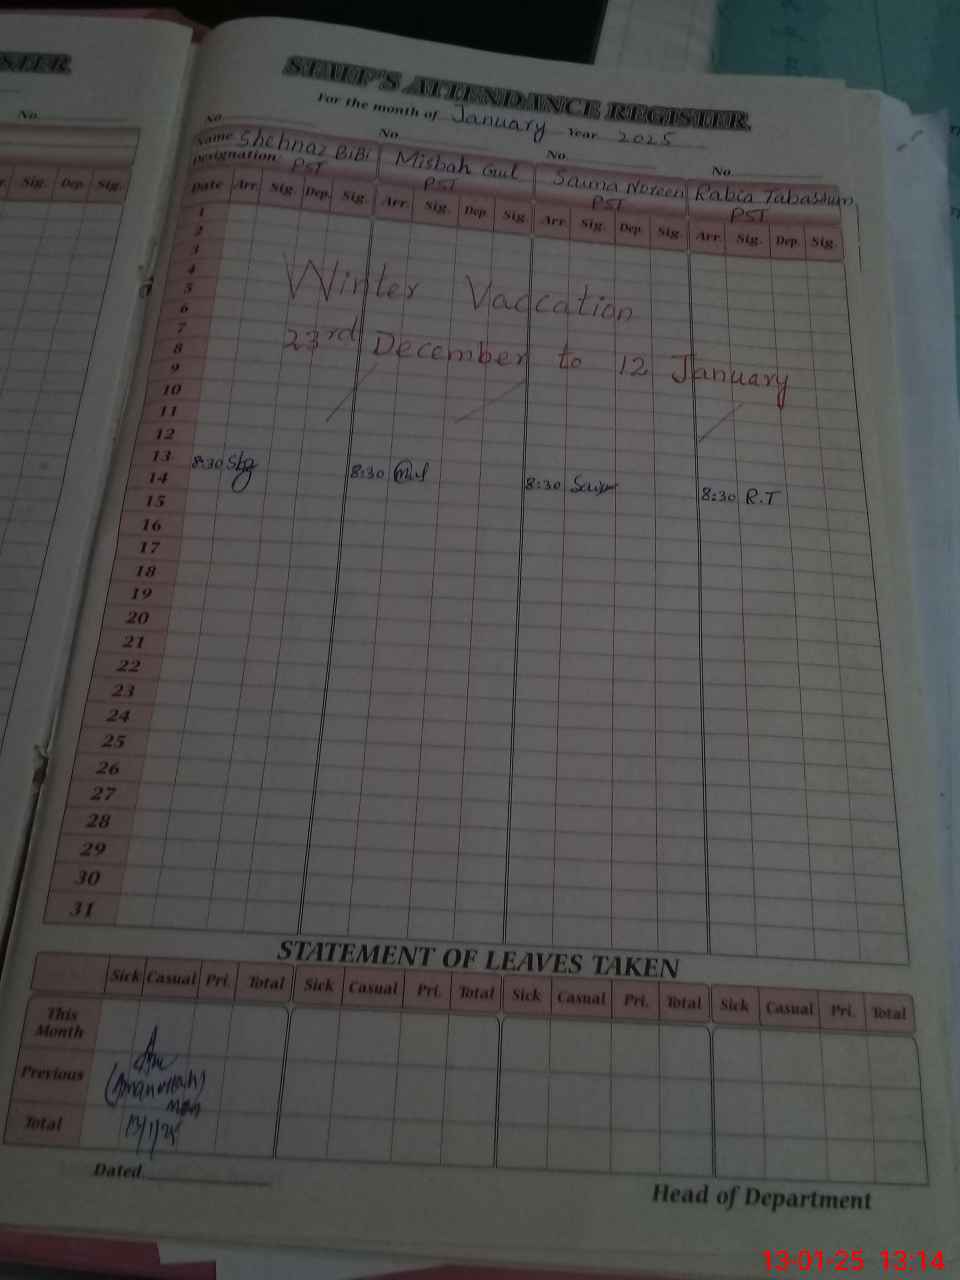 STER
No
r. Sig. Dep. Sig.
STAFF'S ATTENDANCE REGISTER
For the month of January Year 2025
No No No No
Name Shehnaz BiBi Misbah Gul Saima Noreen Rabia Tabassum
Designation PST PST PST PST
Date Arr. Sig. Dep. Sig. Arr. Sig. Dep. Sig. Arr. Sig. Dep. Sig. Arr. Sig. Dep. Sig.
1
2
3
4
5
Winter Vaccation
6
7
8
23rd December to 12 January
9
10
11
12
13 8:30 8:30 8:30 8:30 R.T
14
15
16
17
18
19
20
21
22
23
24
25
26
27
28
29
30
31
STATEMENT OF LEAVES TAKEN
Sick Casual Pri. Total Sick Casual Pri. Total Sick Casual Pri. Total Sick Casual Pri. Total
This Month
Previous
(Amanullah)
Total
13/1/25
Dated
Head of Department
13-01-25 13:14